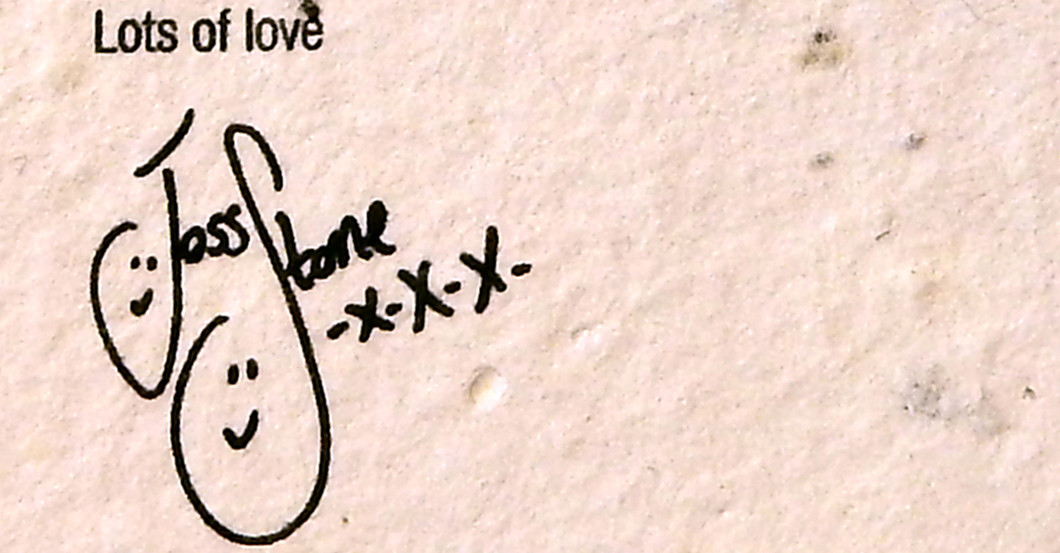 Lots of love
Joss Stone
-x-x-x-